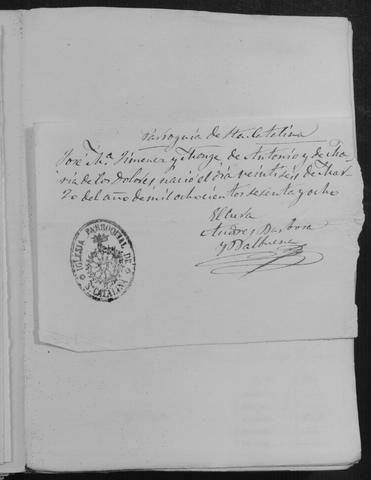 Parroquia de Sta. Catalina
José Mª. Jimenez y Monge de Antonio y de Ma
ria de los Dolores nació el dia veintiseis de Mar
zo del año de mil ochocientos sesenta y ocho
El Cura
Andres Barbosa
y Balbuena
IGLESIA PARROQUIAL DE
S. CATALINA